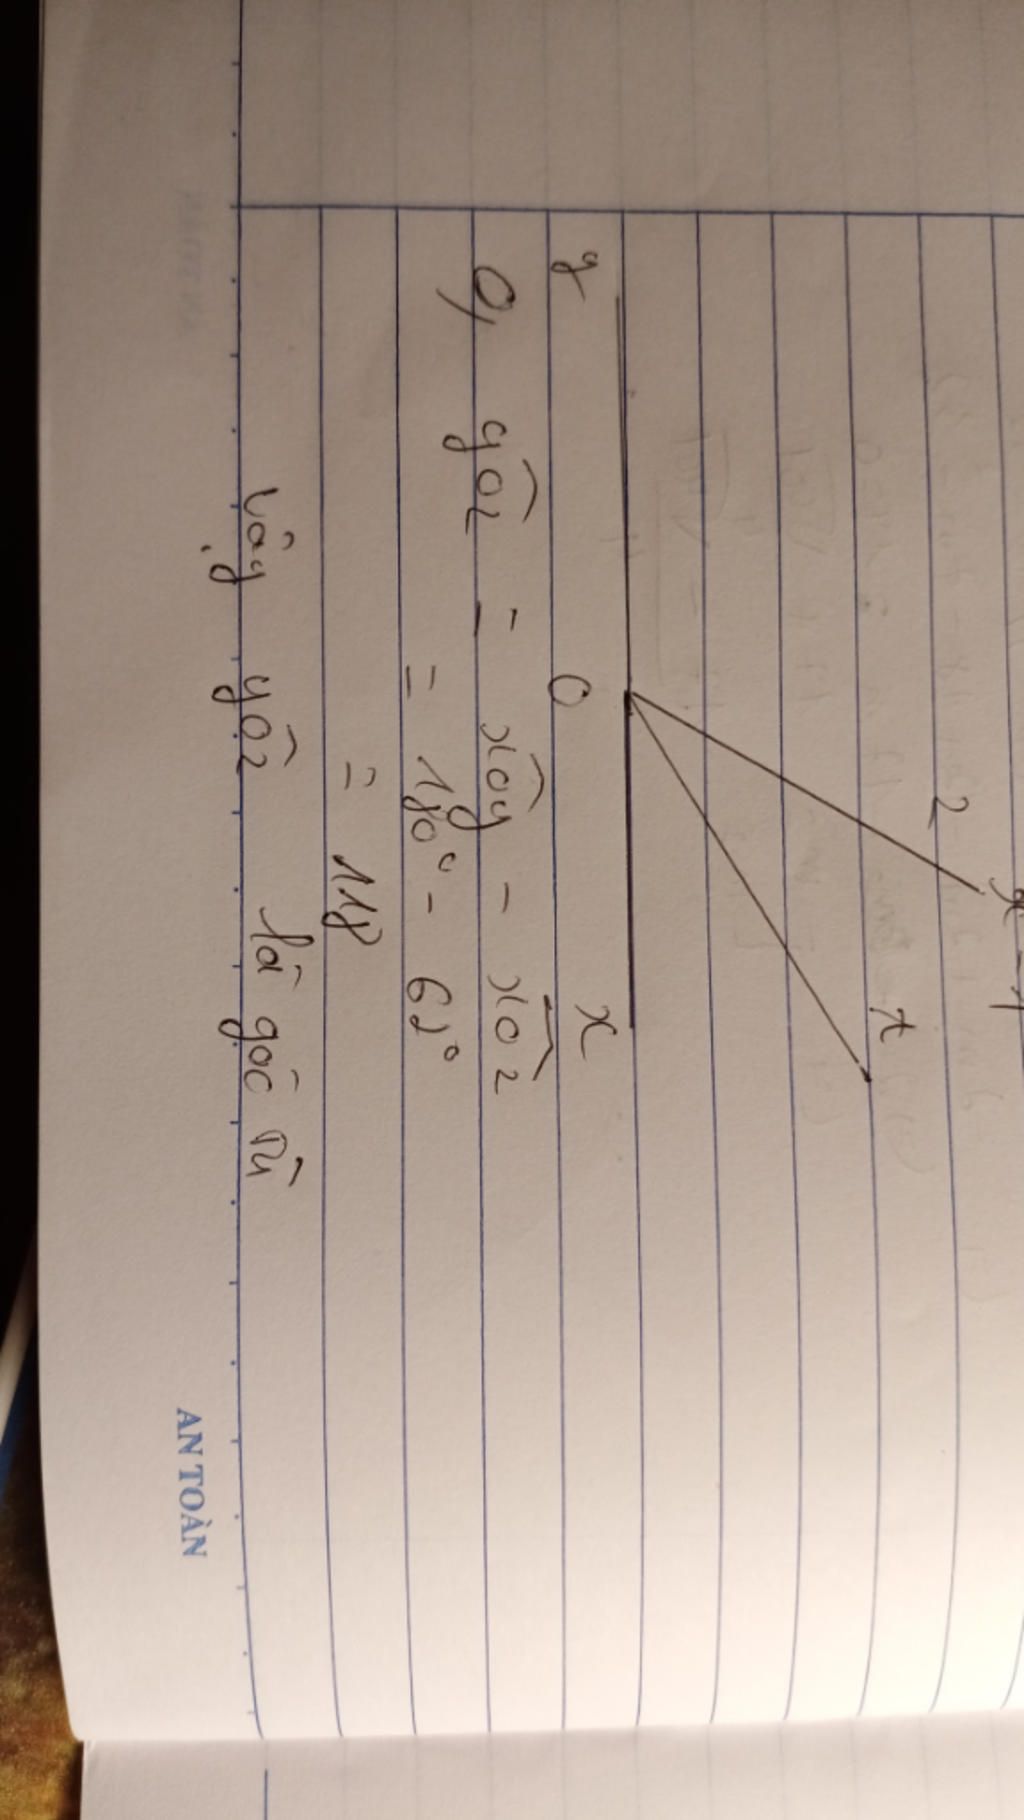 z
t
y O x
a, yOz = xOy - xOz
= 180° - 62°
= 118
Vậy yOz là góc tù
AN TOÀN